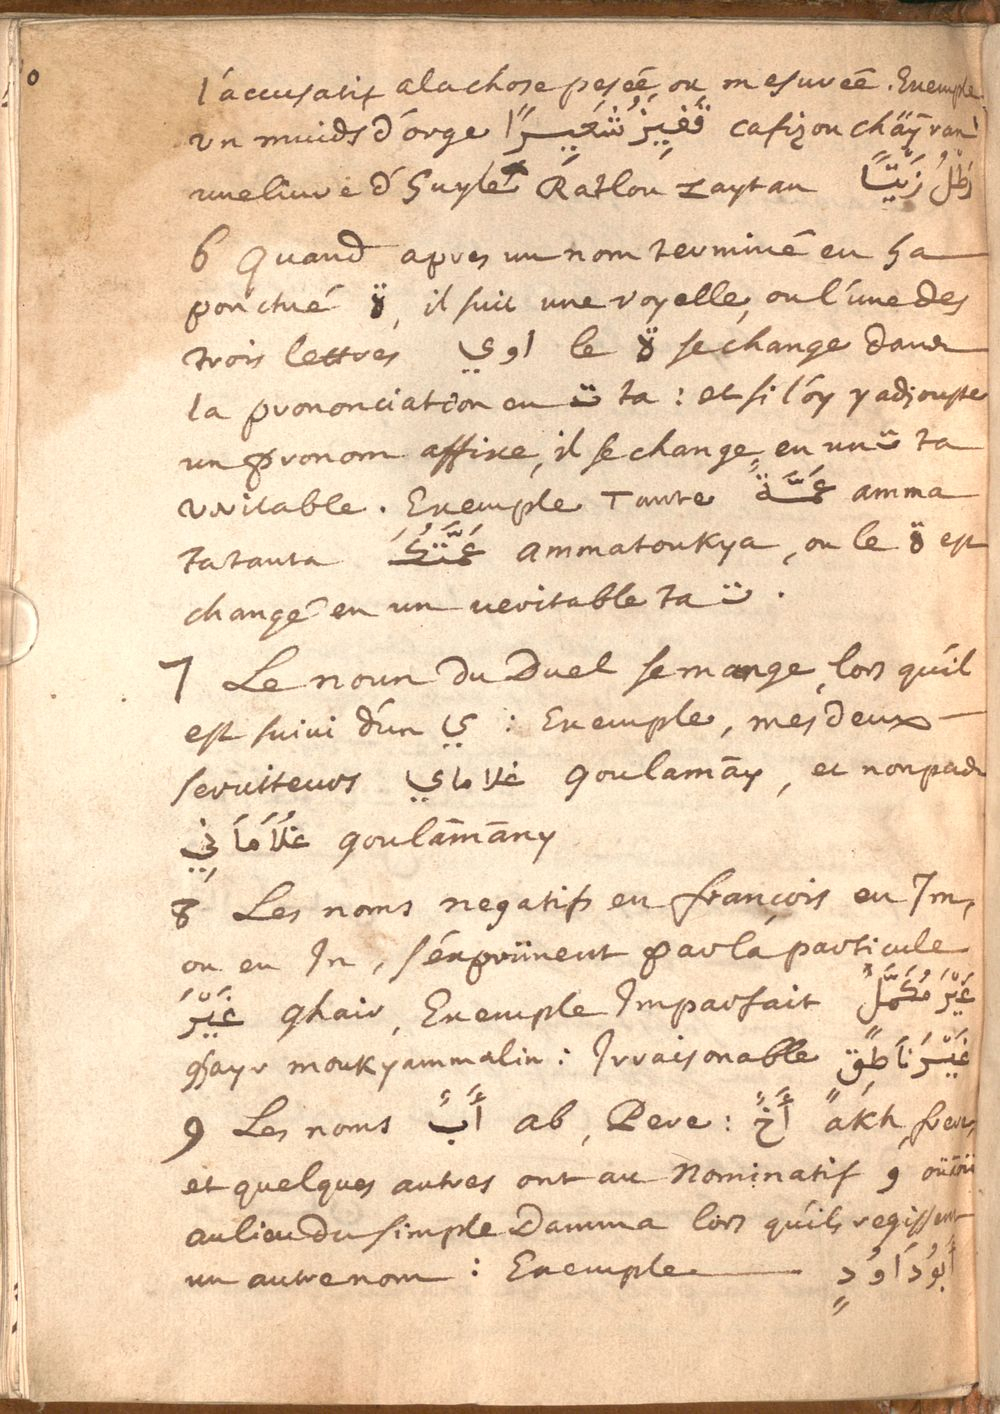 l'accusatif a la chose pesée ou mesureé. Exemple
un muids d'orge قَفِيزٌ شَعِيرًا cafizon chäyran
une livre d'huyle Ratlon zaytan رَطْلٌ زَيْتًا
6 Quand apres un nom terminé en ha
ponctué ة, il suit une voyelle, ou l'une des
trois lettres اوي le ة se change dans
la prononciation en ت ta : et si l'on y adjouste
un pronom affixe, il se change, en un ت ta
veritable. Exemple Tante عَمَّةً amma
ta tanta عَمَّتُكَ ammatoukya, ou le ة est
changé en un veritable ta ت .
7 Le noun du Duel se mange, lors qu'il
est suivi d'un ي : Exemple, mes deux
serviteurs غلاماي goulamāy, et non pas
غُلَامَانِي goulāmāny
8 Les noms negatifs en françois en Im,
ou en In, s'expriment par la particule
غَيْرَ ghair, Exemple Imparfait غَيْرَ مُكَمَّلٌ
ghayr moukyammalin : Irraisonable غَيْرَ نَاطِقٍ
9 Les noms أَبً ab, Pere : أَخً akh, frere,
et quelques autres ont au Nominatif و
au lieu du simple Damma lors qu'ils regissent
un autre nom : Exemple أَبُو دَاوُدٍ